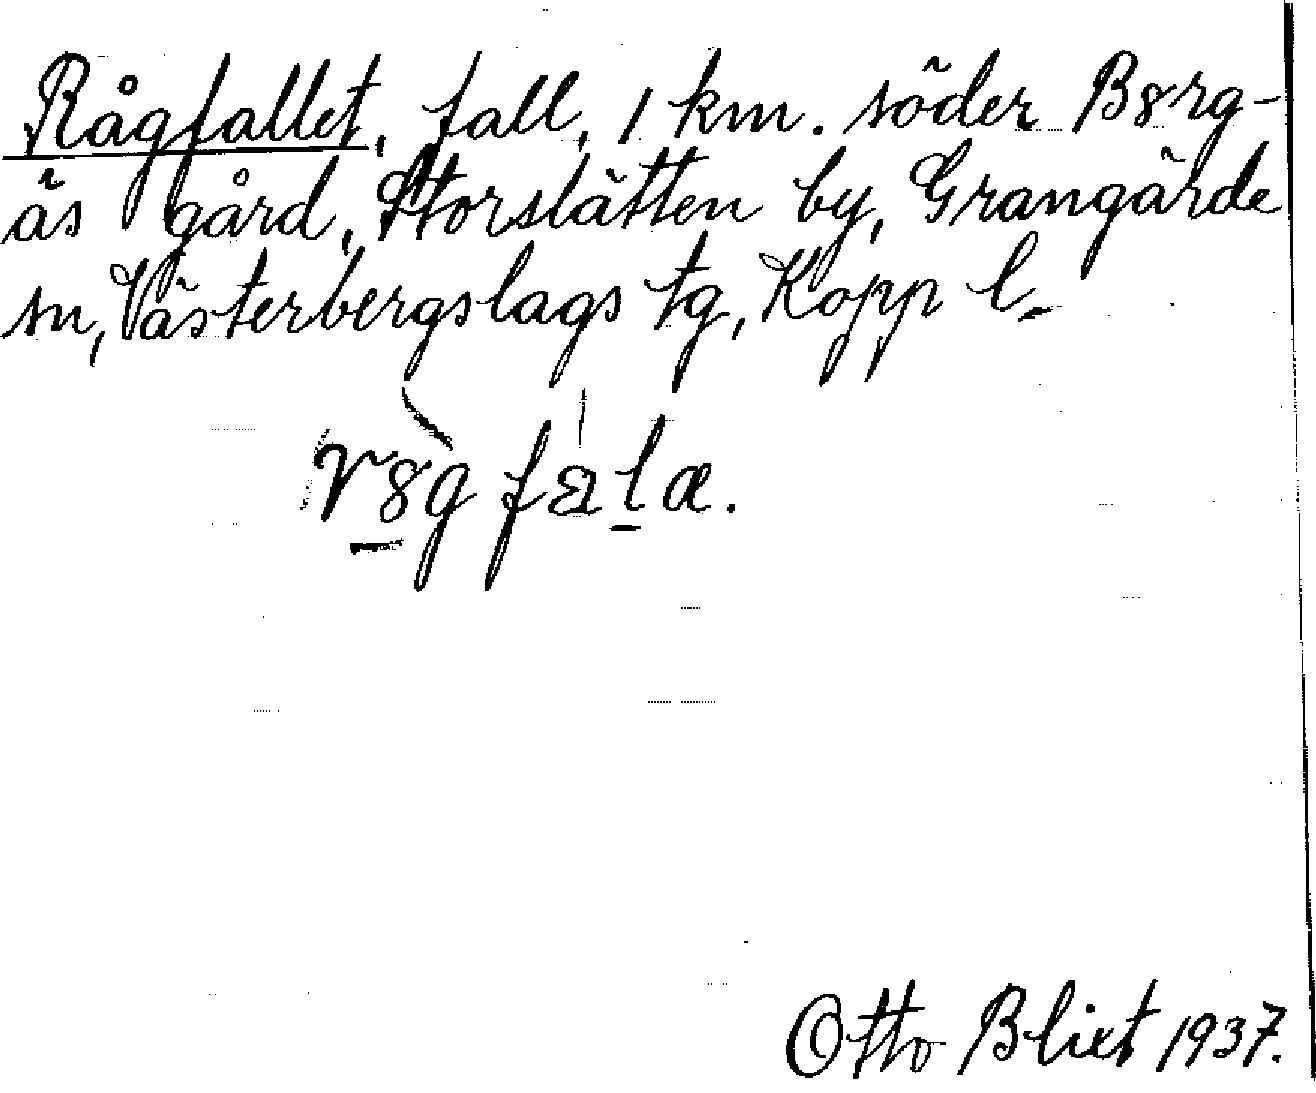 Rågfallet, fall, 1 km. söder Bgrg-
äs gård, Storslätten by, Grangärde
sn, Västerbergslags tg, Kopp l.
Otto Blixt 1937.